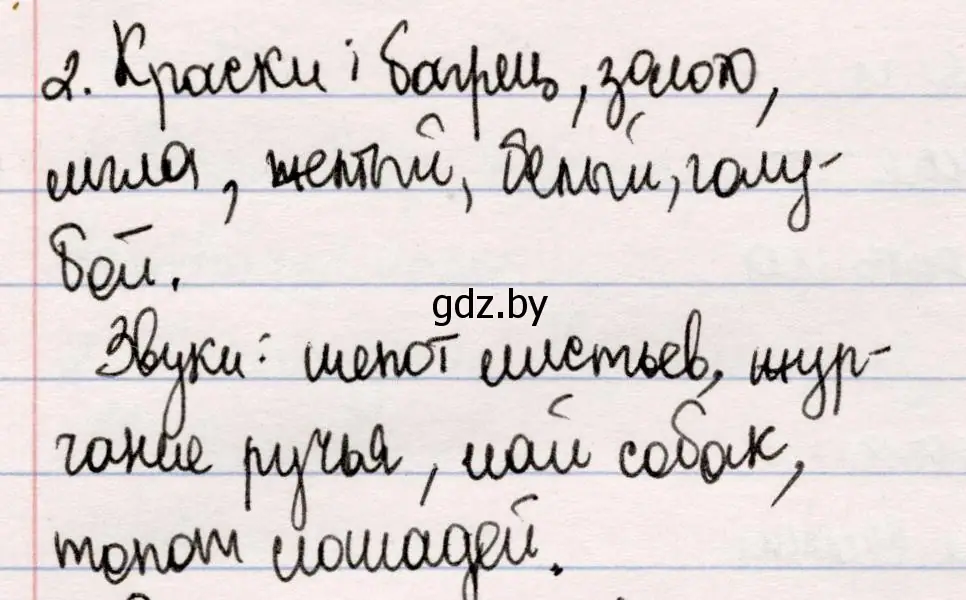 2. Краски: багрец, золото,
мгла, желтый, белый, голу-
бой.
gdz.by
Звуки: шепот листьев, жур-
чание ручья, лай собак,
топот лошадей.